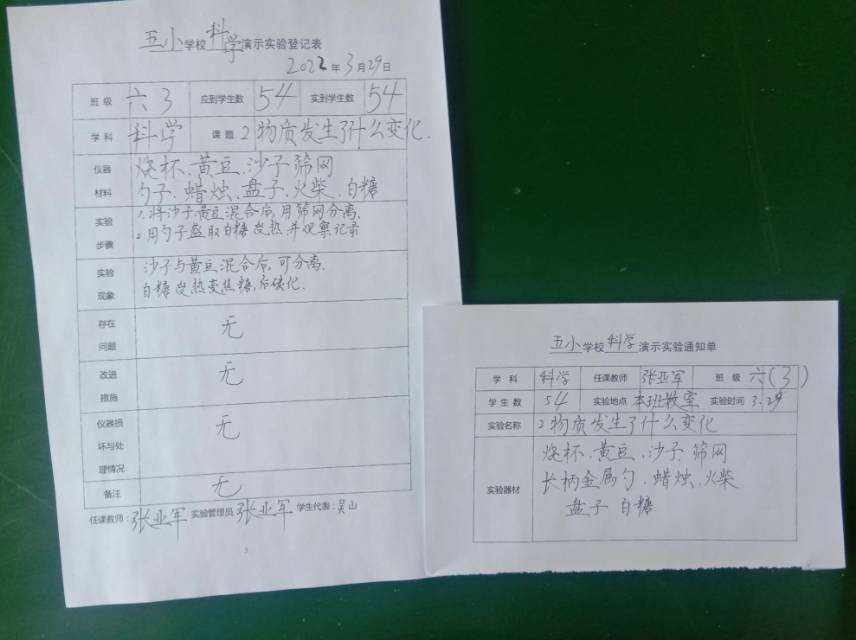 五小学校科学演示实验登记表
2022年3月29日
班级 六3 应到学生数 54 实到学生数 54
学科 科学 课题 2物质发生了什么变化.
仪器材料 烧杯、黄豆、沙子、筛网
勺子、蜡烛、盘子、火柴、白糖
实验步骤 1.将沙子、黄豆混合后,用筛网分离.
2.用勺子盛取白糖加热,并观察记录
实验现象 沙子与黄豆混合后,可分离.
白糖加热变焦糖,后碳化.
存在问题 无
改进措施 无
仪器损坏与处理情况 无
备注 无
任课教师:张亚军 实验管理员 张亚军 学生代表:吴山
五小学校科学演示实验通知单
学科 科学 任课教师 张亚军 班级 六(3)
学生数 54 实验地点 本班教室 实验时间 3.29
实验名称 2物质发生了什么变化
实验器材 烧杯、黄豆、沙子、筛网
长柄金属勺、蜡烛、火柴
盘子 白糖